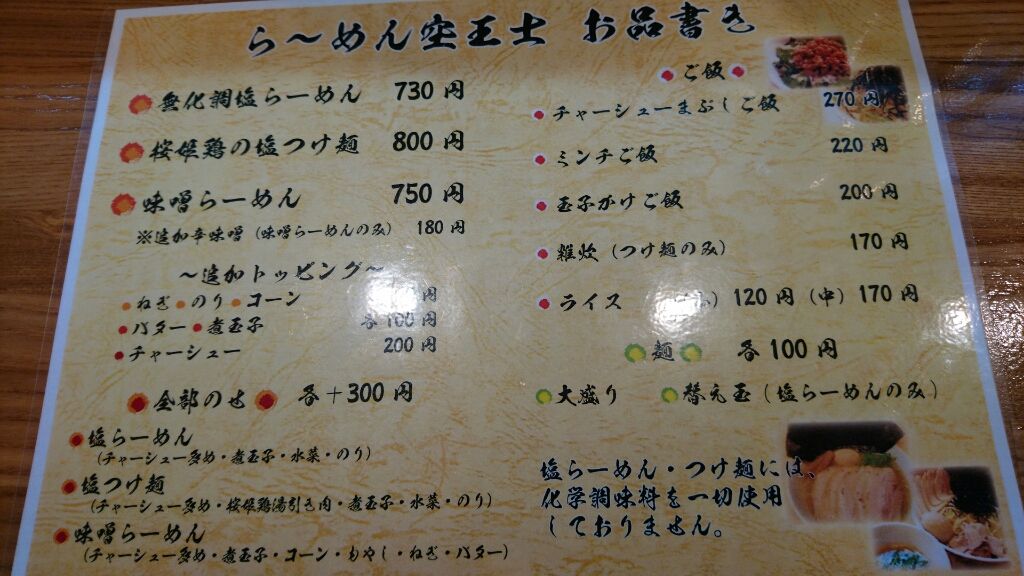 ら～めん空王士 お品書き
無化調塩らーめん 730円
桜姫鶏の塩つけ麺 800円
味噌らーめん 750円
※追加辛味噌（味噌らーめんのみ） 180円
～追加トッピング～
ねぎ・のり・コーン 円
バター・煮玉子 各100円
チャーシュー 200円
全部のせ 各＋300円
塩らーめん
（チャーシュー多め・煮玉子・水菜・のり）
塩つけ麺
（チャーシュー多め・桜姫鶏湯引き肉・煮玉子・水菜・のり）
味噌らーめん
（チャーシュー多め・煮玉子・コーン・もやし・ねぎ・バター）
ご飯
チャーシューまぶしご飯 270円
ミンチご飯 220円
玉子かけご飯 200円
雑炊（つけ麺のみ） 170円
ライス （小）120円（中）170円
麺 各100円
大盛り 替え玉（塩らーめんのみ）
塩らーめん・つけ麺には、
化学調味料を一切使用
しておりません。